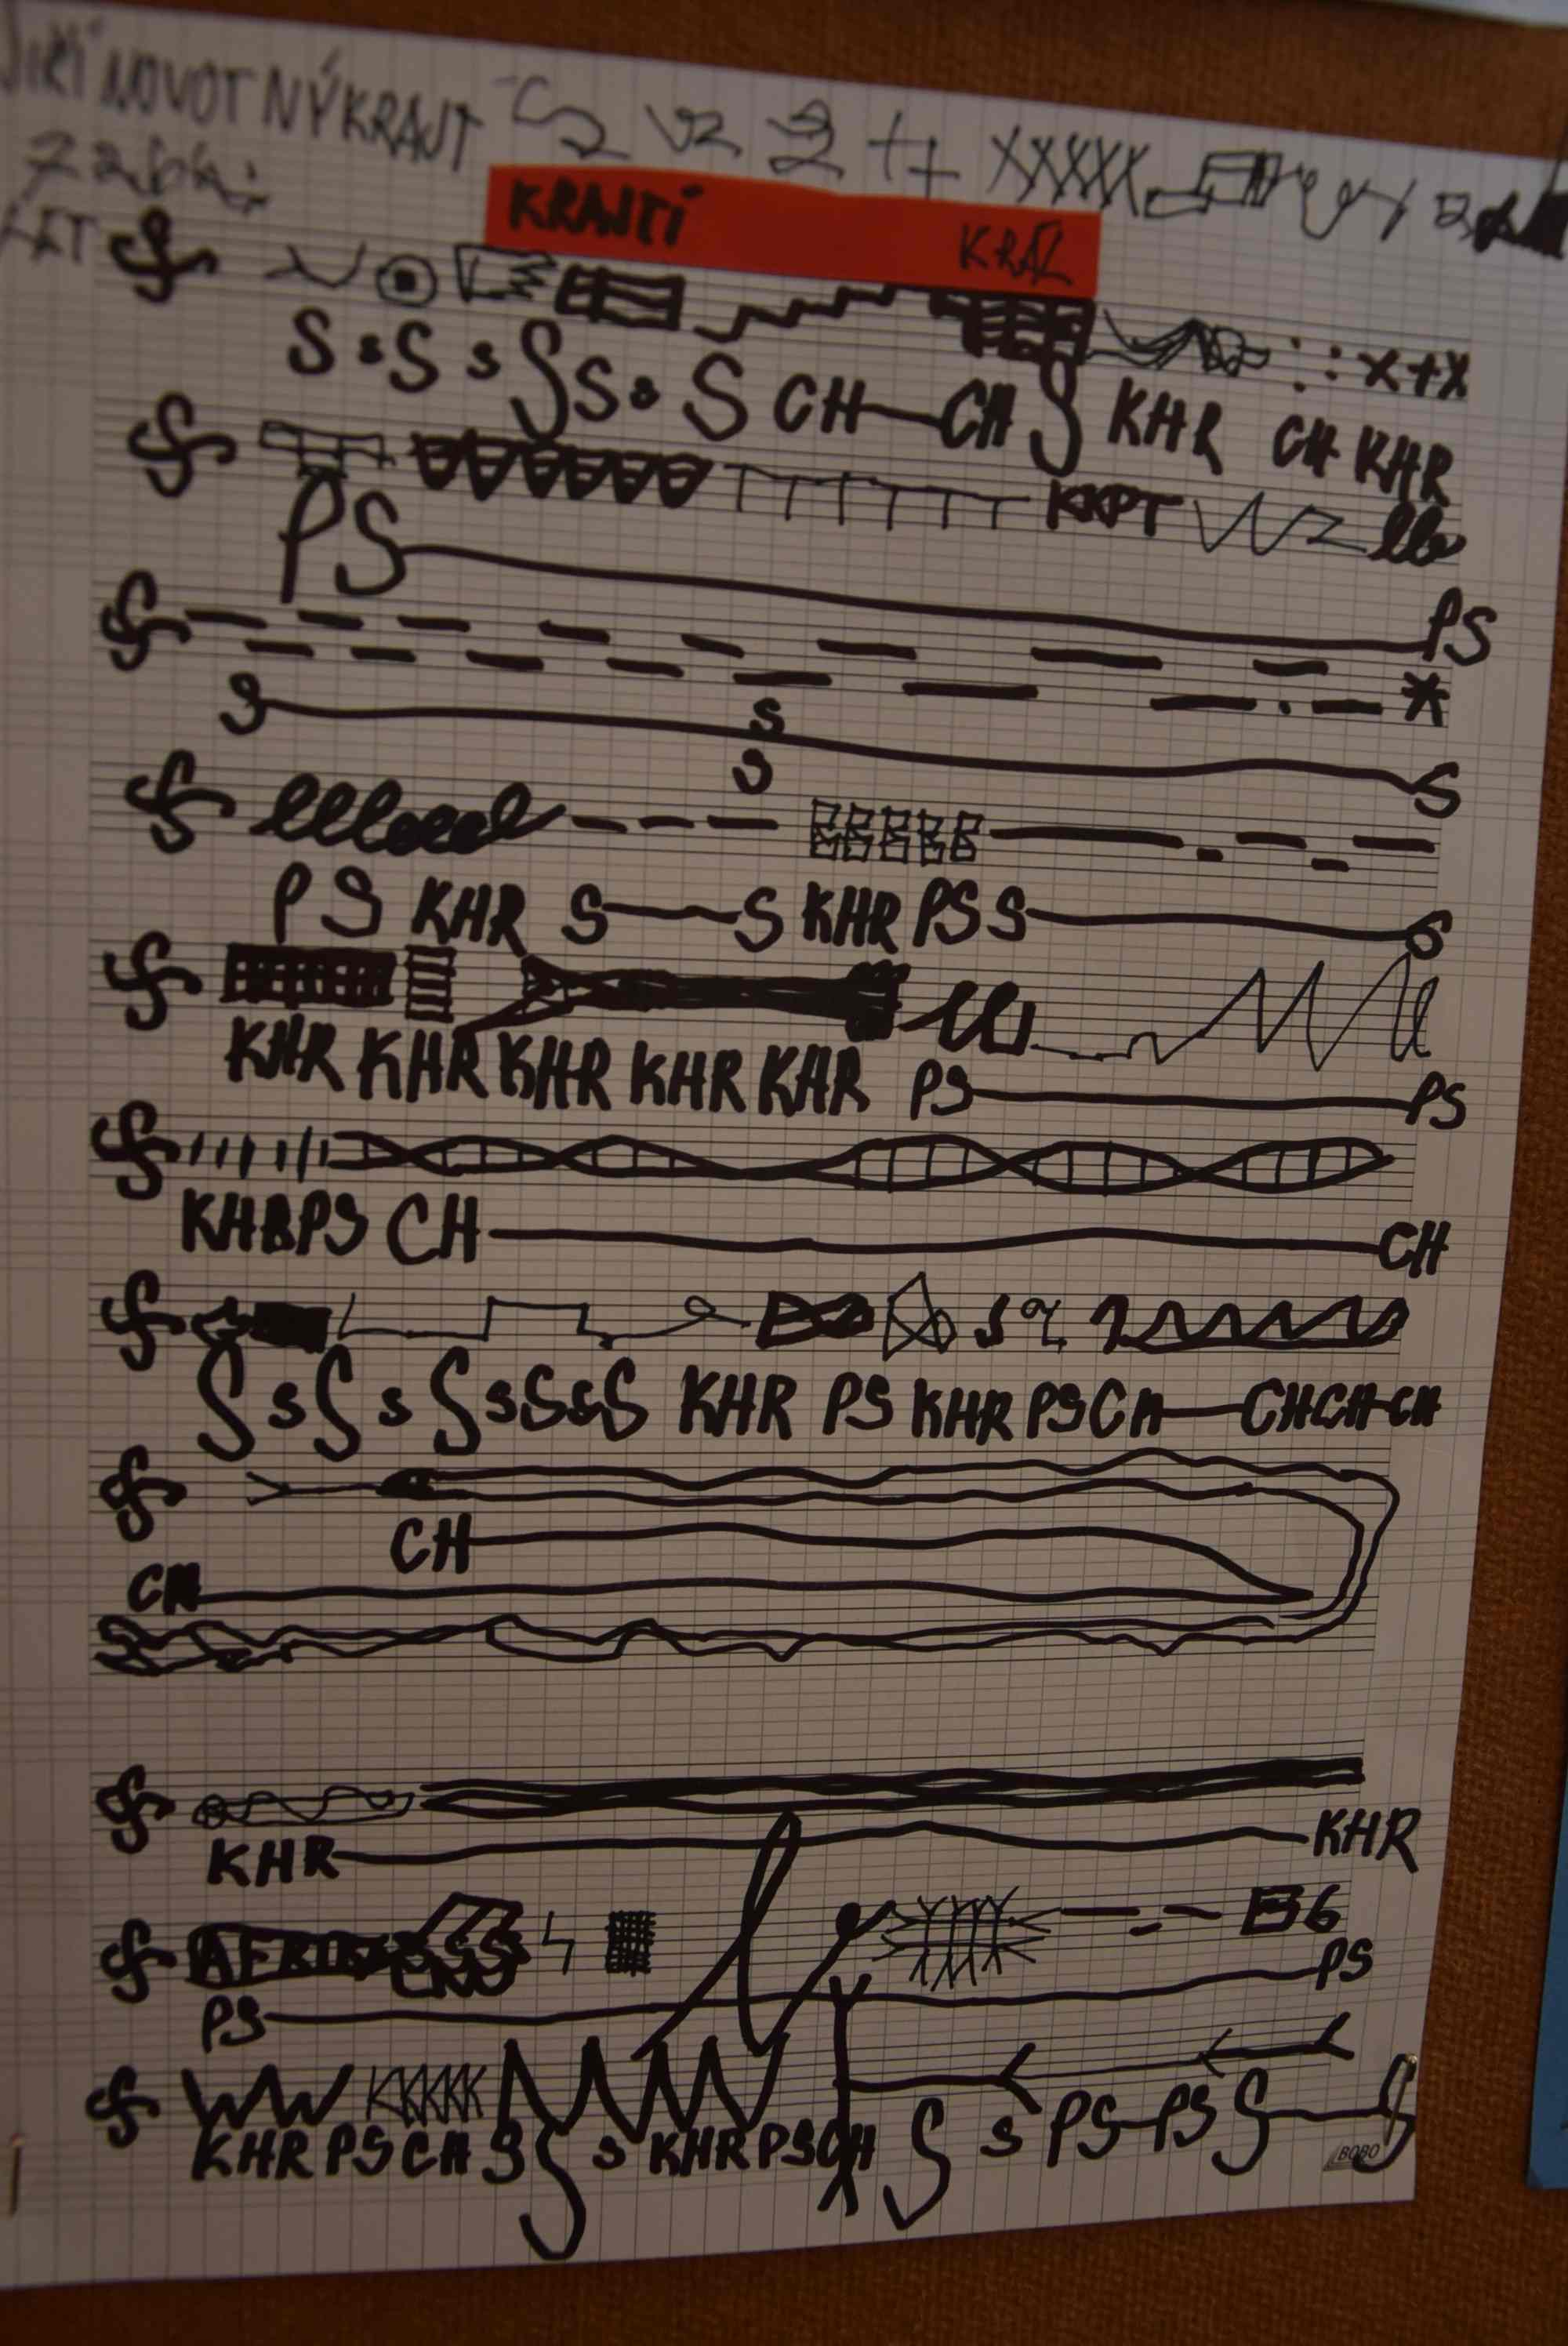 JIŘÍ NOVOTNÝ KRAJT
KRAJTÍ KRÁL
LET
x+x
S s S s S S s S CH—CH S KHR CH KHR
KKPT
PS PS
S S S
S
P S KHR S—S KHR PS S S
KHR KHR KHR KHR KHR PS PS
PS CH CH
S s S s S s S s S KHR PS KHR PS CH—CH CH CH
CH
CH
KHR KHR
B6
PS PS
WW KKKKK
KHR PS CH S S s KHR PS CH S s PS PS S S
BOBO